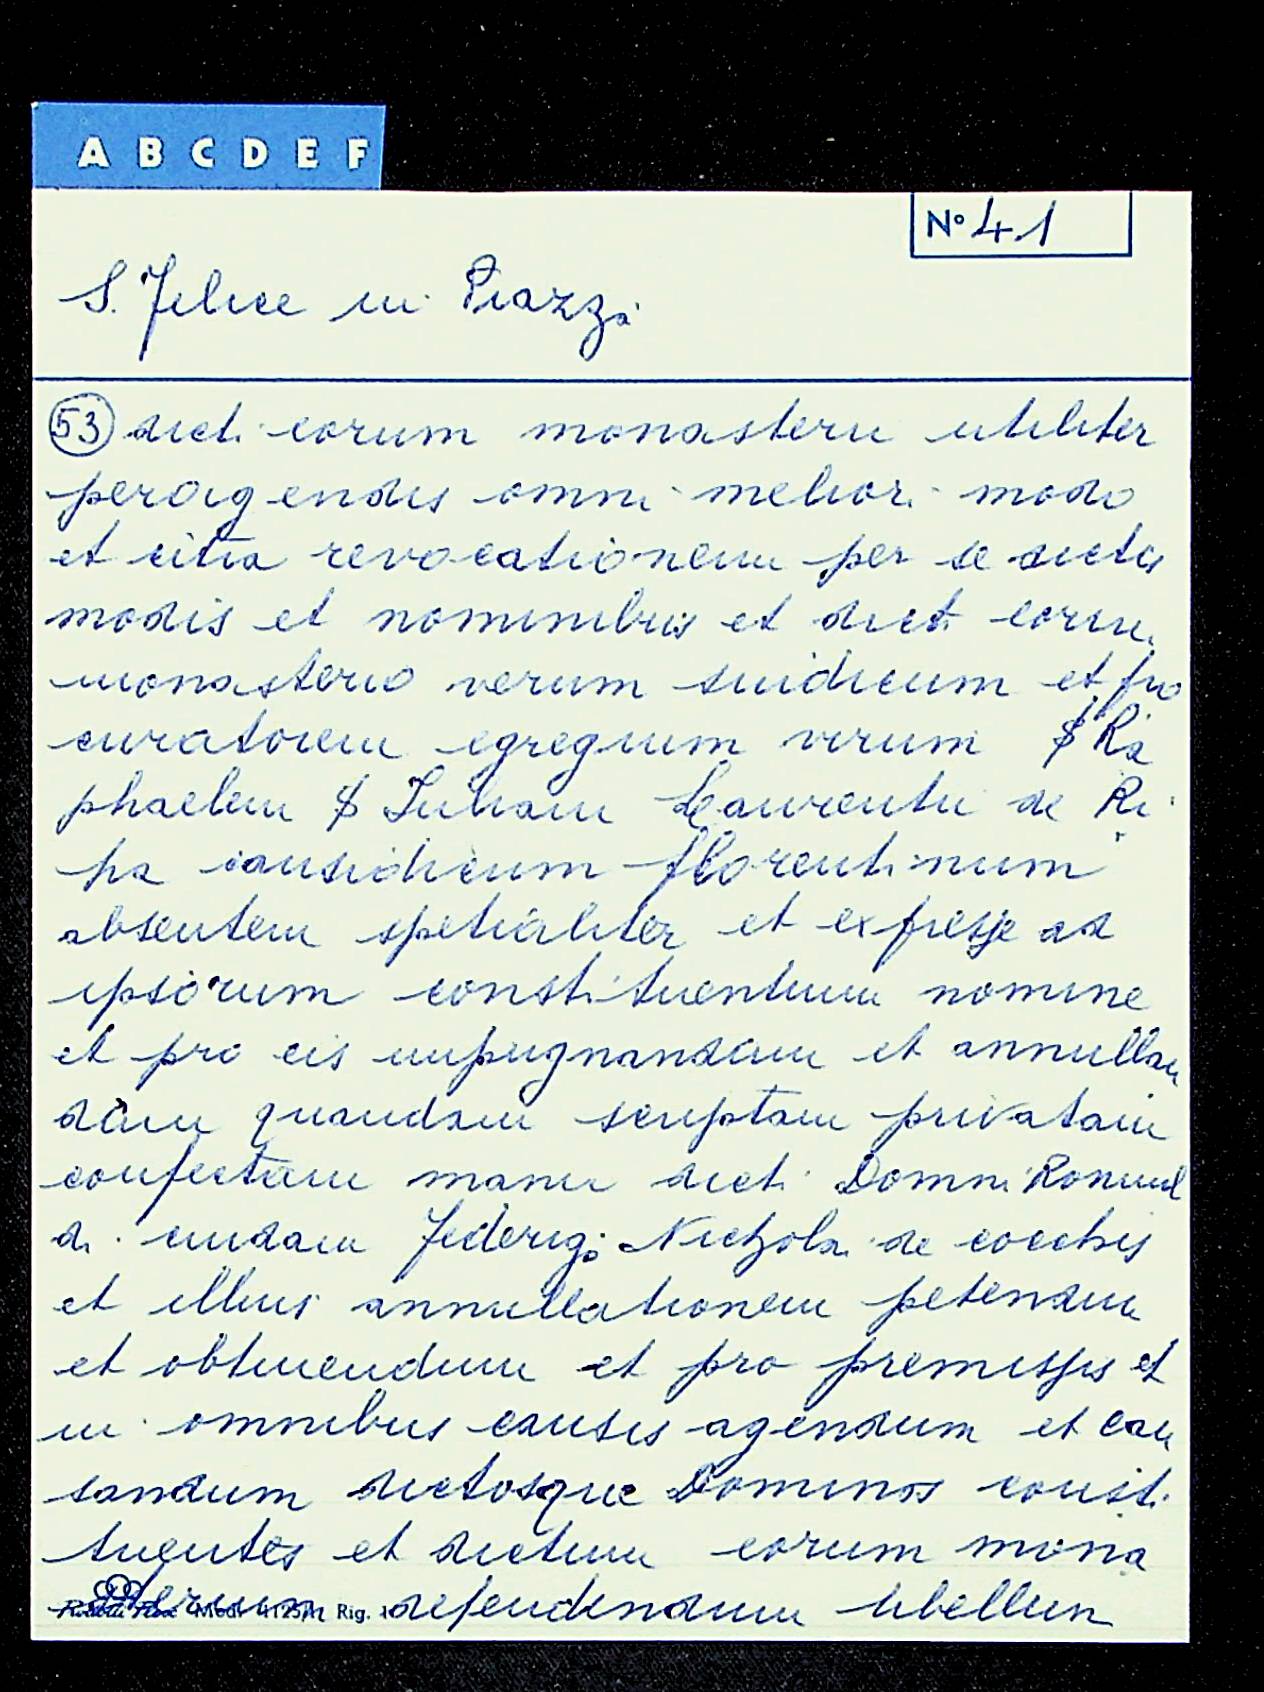 A B C D E F
N° 41
S. Felice in Piazza
53 dicti eorum monasterii utiliter
peragendis omni meliori modo
et citra revocationem per se dictis
modis et nominibus et dict eorum
monasterio verum sindicum et pro
curatorem egregium virum $ Ra
phaelem $ Juliani Laurentii de Ri
pa causidicum florentinum
absentem spetialiter et expresse ad
ipsorum constituentium nomine
et pro eis impugnandam et annullan
dam quandam scriptam privatam
confectam manu dicti Domni Romual
di cuidam Federigo Nicholai de cocchis
et illius annullationem petendam
et obtinendum et pro premissis et
in omnibus causis agendum et cau
sandum dictosque Dominos consti
tuentes et dictum eorum mona
sterium defendendum libellum
Mod. Rig.